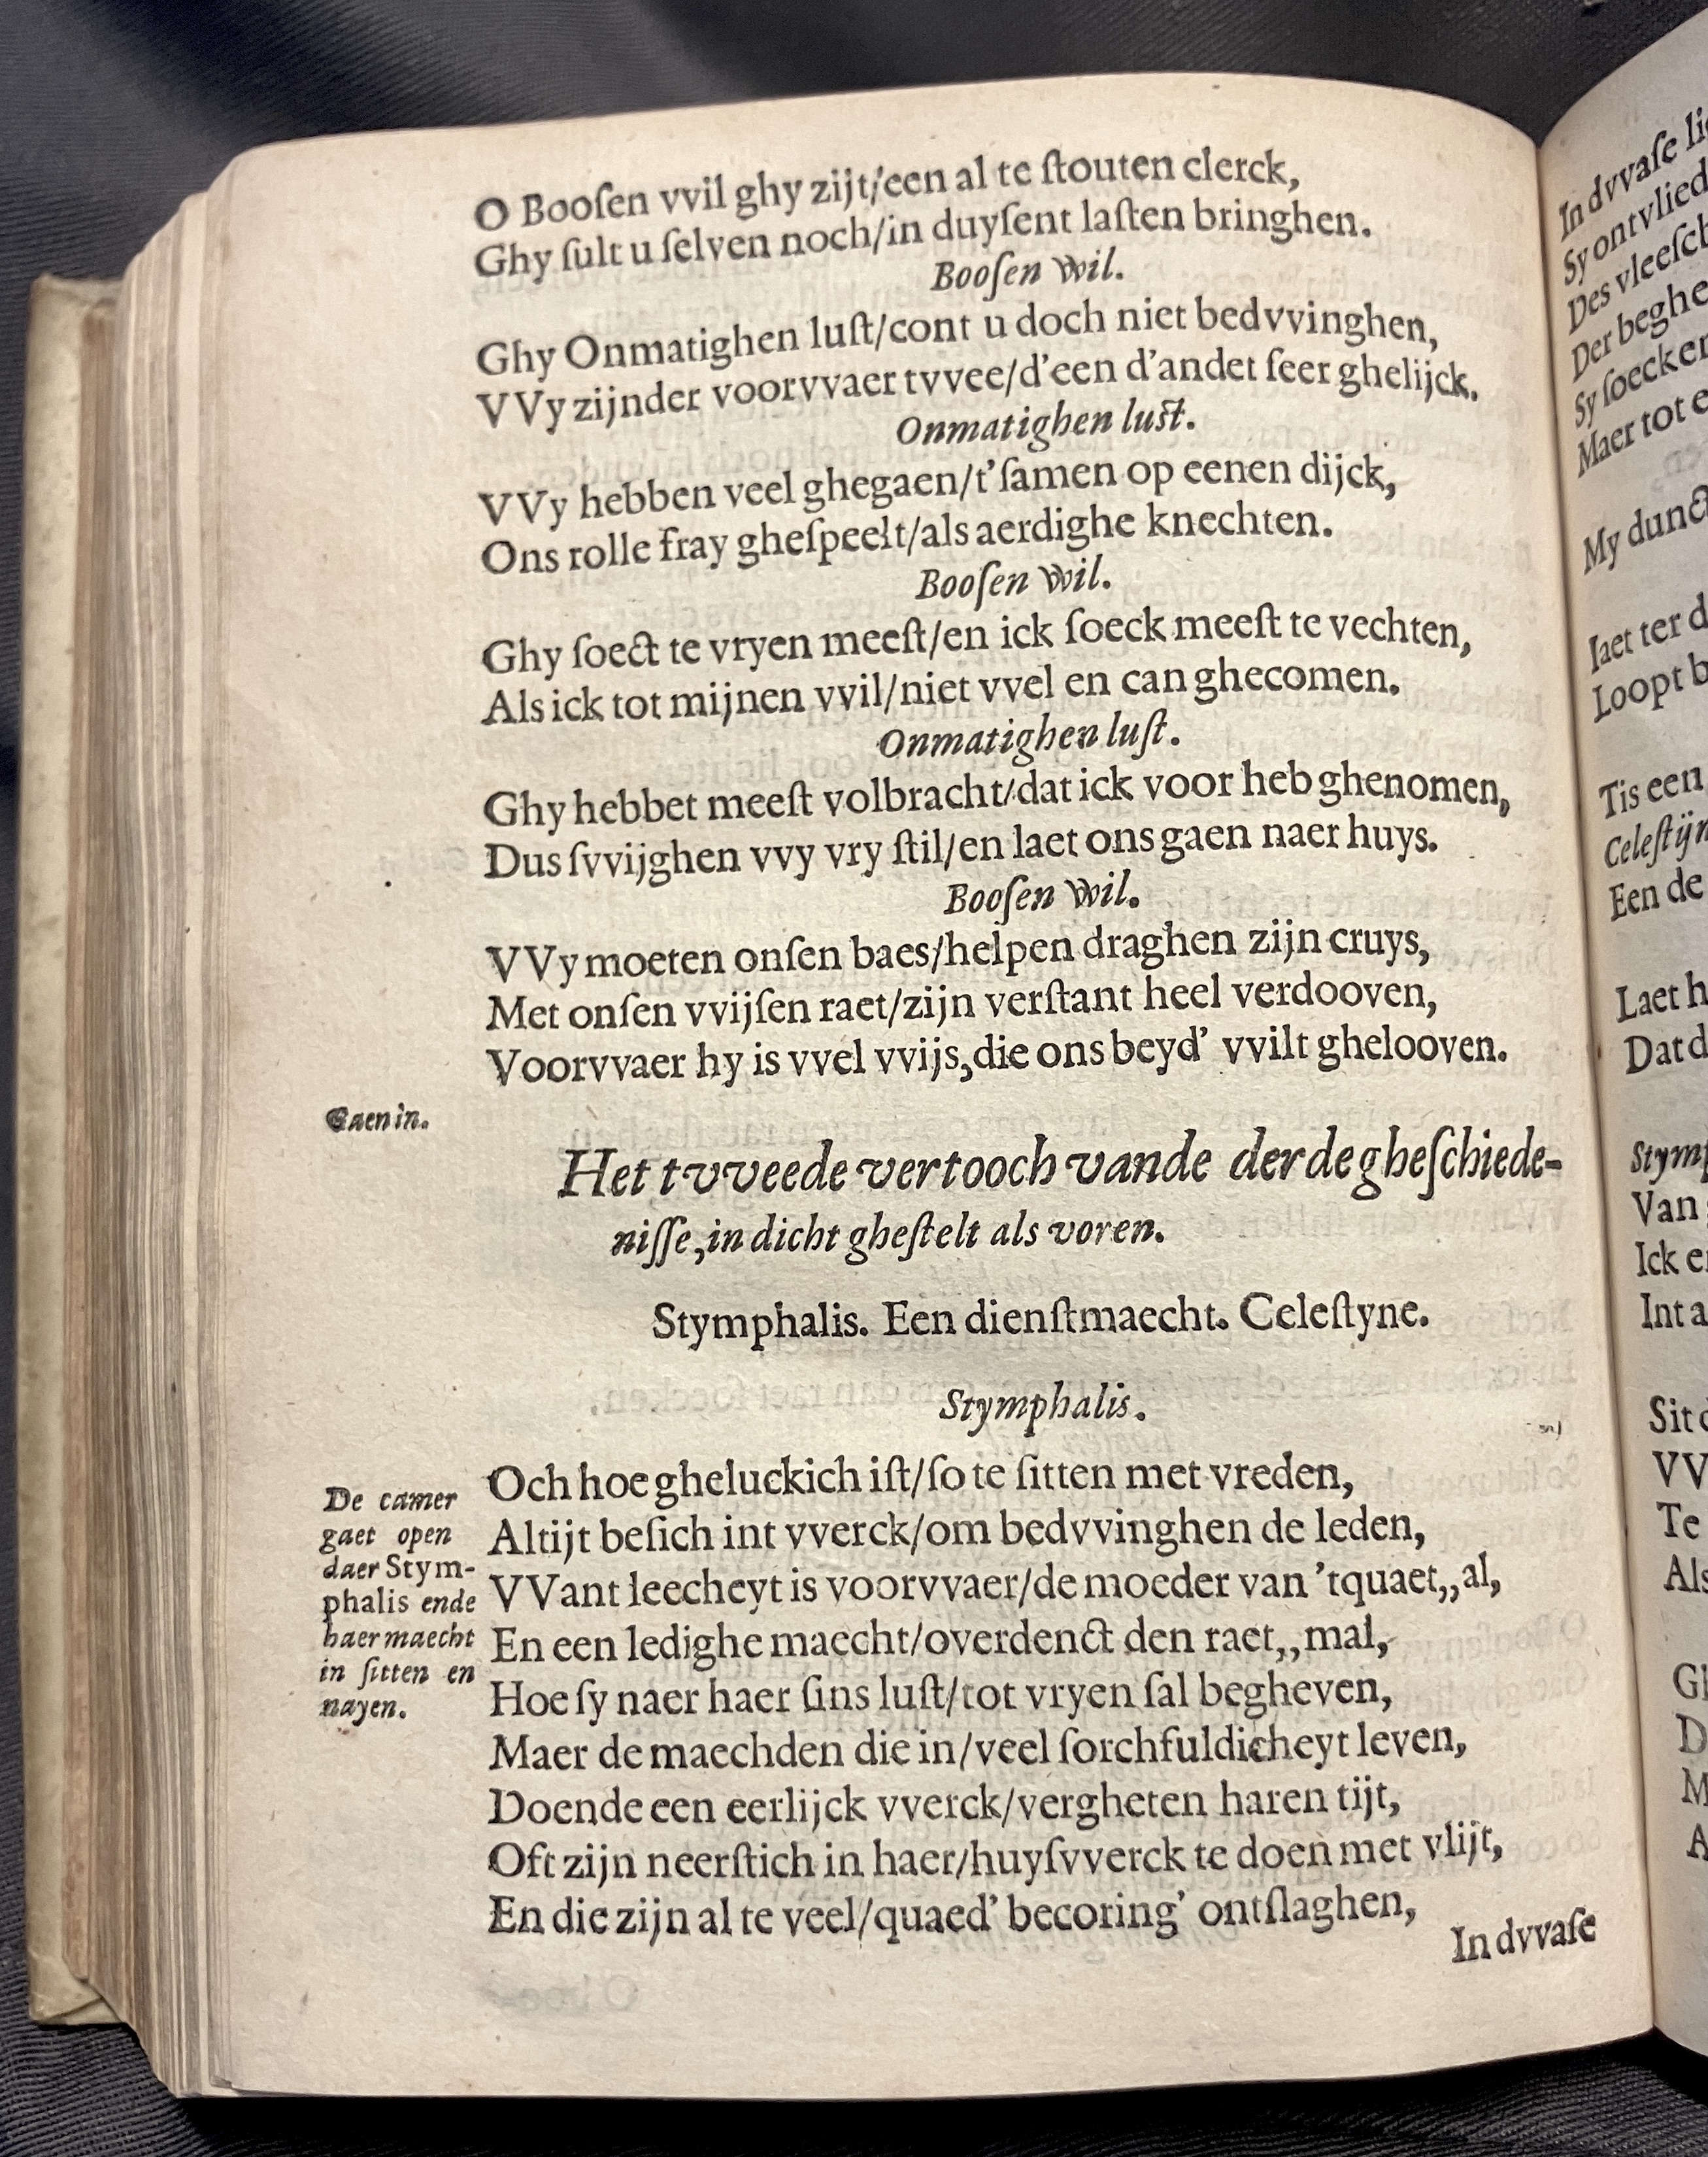 O Booſen vvil ghy zijt/een al te ſtouten clerck,
Ghy ſult u ſelven noch/in duyſent laſten bringhen.
Booſen Wil.
Ghy Onmatighen luſt/cont u doch niet bedvvinghen,
VVy zijnder voorvvaer tvvee/d'een d'andet ſeer ghelijck.
Onmatighen luſt.
VVy hebben veel ghegaen/t'ſamen op eenen dijck,
Ons rolle fray gheſpeelt/als aerdighe knechten.
Booſen Wil.
Ghy ſoect te vryen meeſt/en ick ſoeck meeſt te vechten,
Als ick tot mijnen vvil/niet vvel en can ghecomen.
Onmatighen luſt.
Ghy hebbet meeſt volbracht/dat ick voor heb ghenomen,
Dus ſvvijghen vvy vry ſtil/en laet ons gaen naer huys.
Booſen Wil.
VVy moeten onſen baes/helpen draghen zijn cruys,
Met onſen vvijſen raet/zijn verſtant heel verdooven,
Voorvvaer hy is vvel vvijs,die ons beyd' vvilt ghelooven.
Gaen in.
Het tvveede vertooch vande derde gheſchiede-
niſſe,in dicht gheſtelt als voren.
Stymphalis. Een dienſtmaecht. Celeſtyne.
Stymphalis.
De camer
gaet open
daer Stym-
phalis ende
haer maecht
in ſitten en
nayen.
Och hoe gheluckich iſt/ſo te ſitten met vreden,
Altijt beſich int vverck/om bedvvinghen de leden,
VVant leecheyt is voorvvaer/de moeder van 'tquaet,,al,
En een ledighe maecht/overdenct den raet,,mal,
Hoe ſy naer haer ſins luſt/tot vryen ſal begheven,
Maer de maechden die in/veel ſorchfuldicheyt leven,
Doende een eerlijck vverck/vergheten haren tijt,
Oft zijn neerſtich in haer/huyſvverck te doen met vlijt,
En die zijn al te veel/quaed' becoring' ontſlaghen,
In dvvaſe
In dvvaſe
Sy ontvlied
Des vleeſch
Der beghe
Sy ſoecken
Maer tot e
My dunct
Iaet ter d
Loopt b
Tis een
Celeſtijn
Een de
Laet h
Dat d
Stymp
Van
Ick e
Int a
Sit
VV
Te
Als